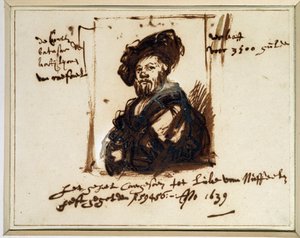 de Conte
batasar de
kastylyone
van rafael
verkoft
voor 3500 gulden
het geheel caergesoen tot Luke van Nuffeelen
heeft gegolden f 59456 :- Ano 1639